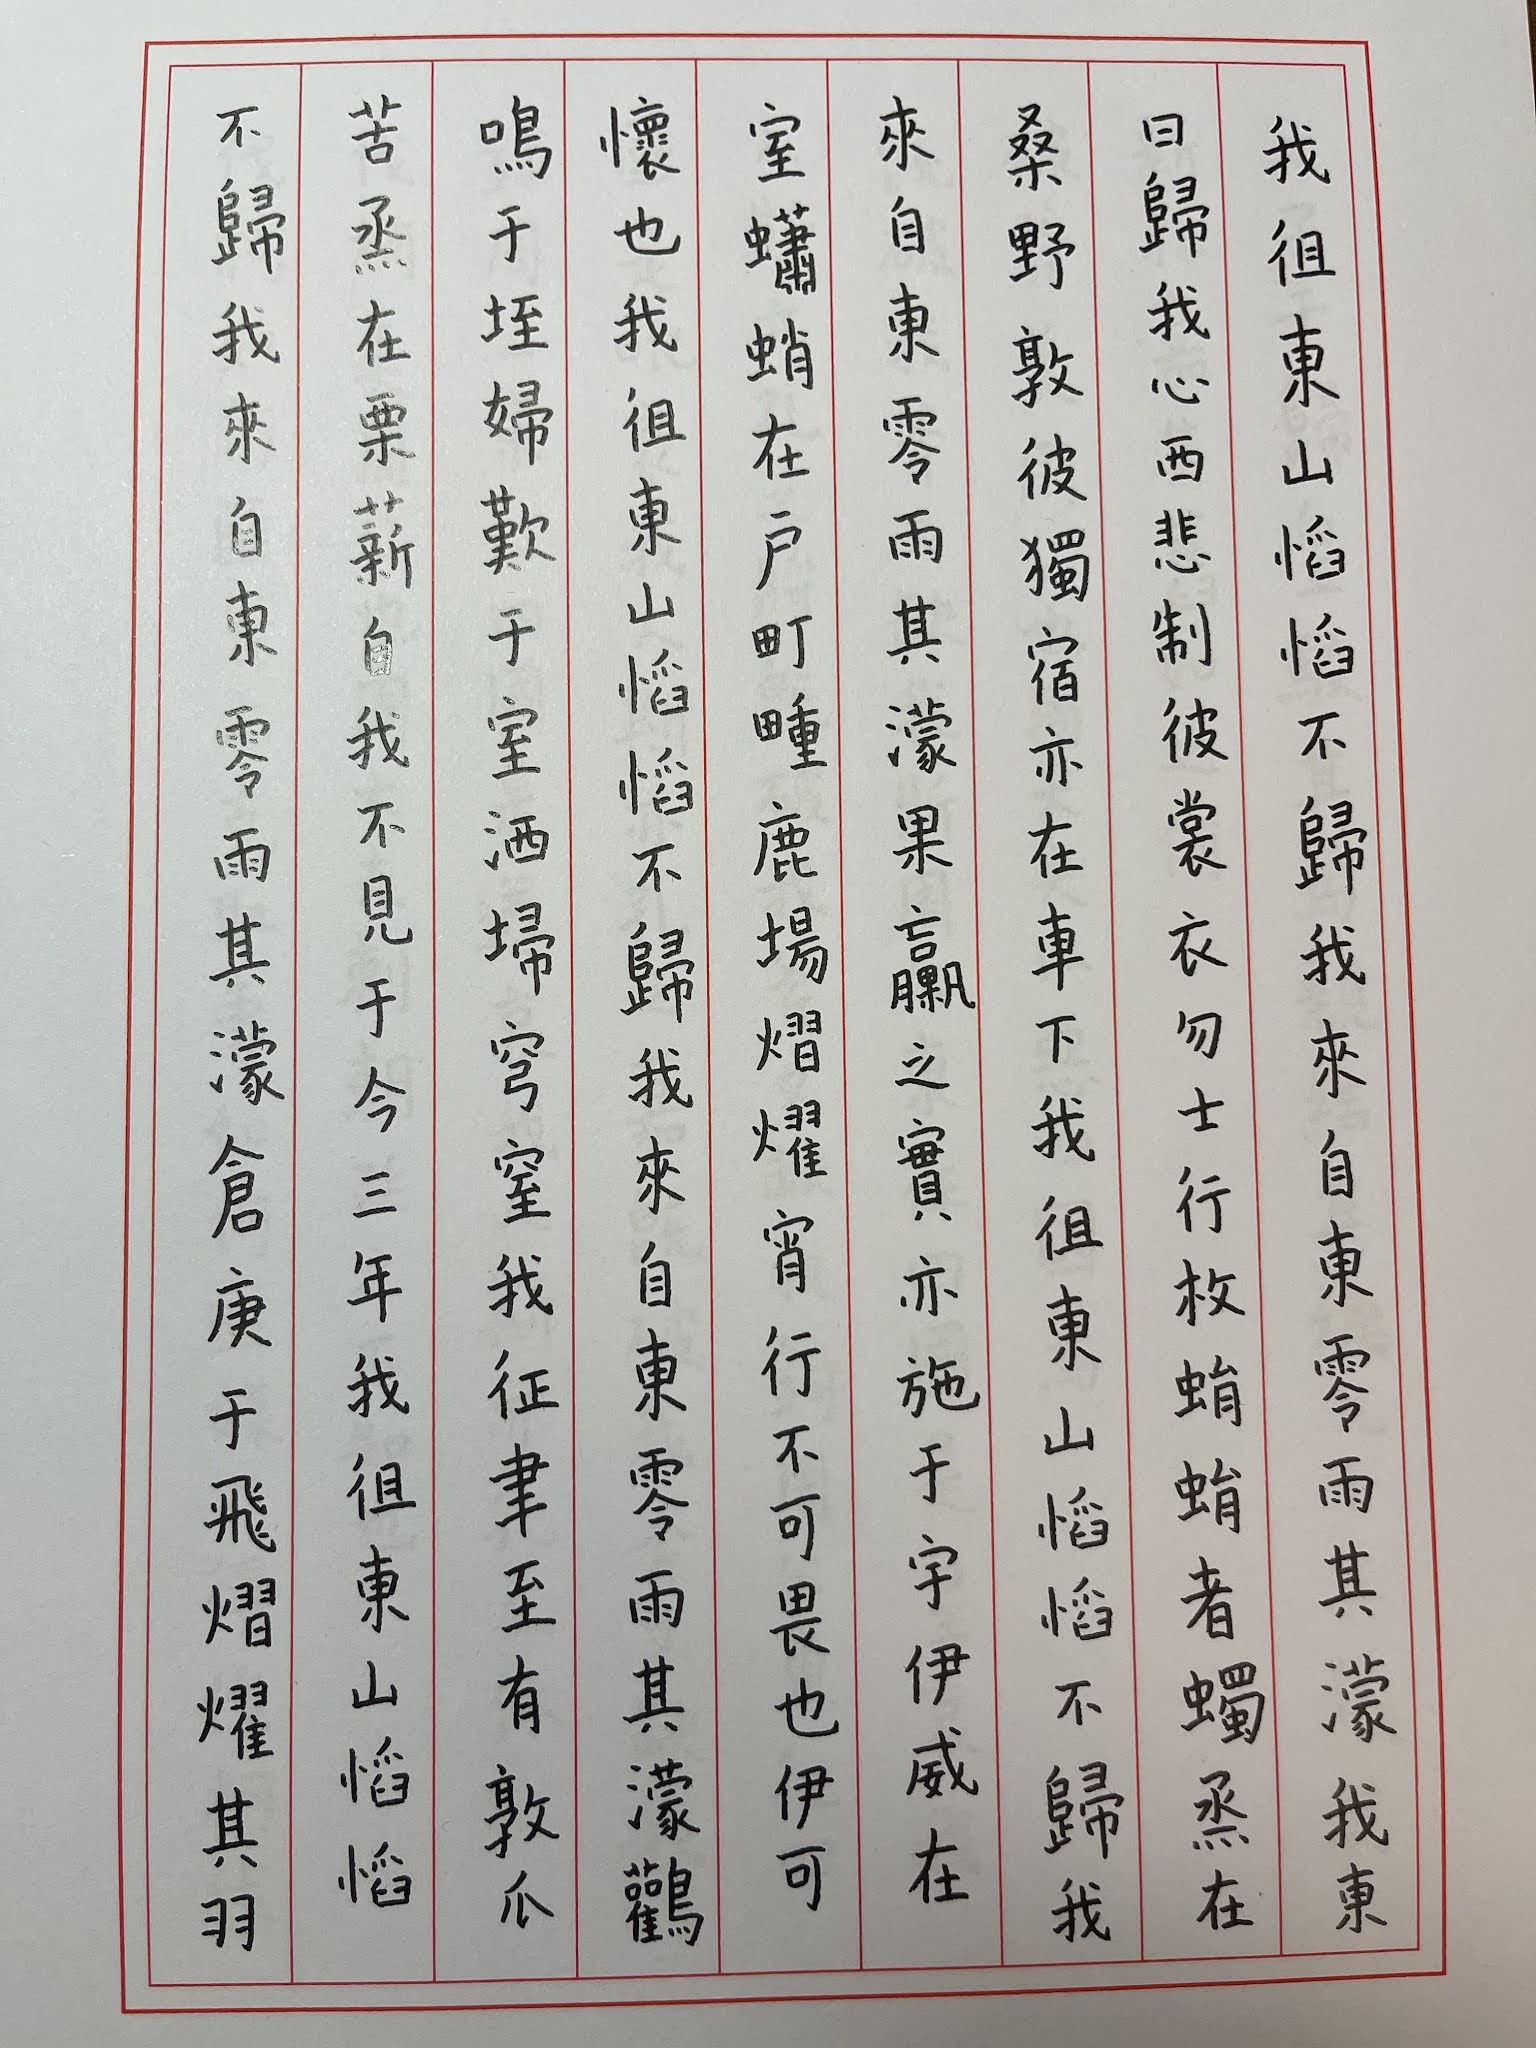 我徂東山慆慆不歸我來自東零雨其濛我東
曰歸我心西悲制彼裳衣勿士行枚蜎蜎者蠋烝在
桑野敦彼獨宿亦在車下我徂東山慆慆不歸我
來自東零雨其濛果臝之實亦施于宇伊威在
室蠨蛸在戶町畽鹿場熠燿宵行不可畏也伊可
懷也我徂東山慆慆不歸我來自東零雨其濛鸛
鳴于垤婦歎于室洒埽穹窒我征聿至有敦瓜
苦烝在栗薪自我不見于今三年我徂東山慆慆
不歸我來自東零雨其濛倉庚于飛熠燿其羽